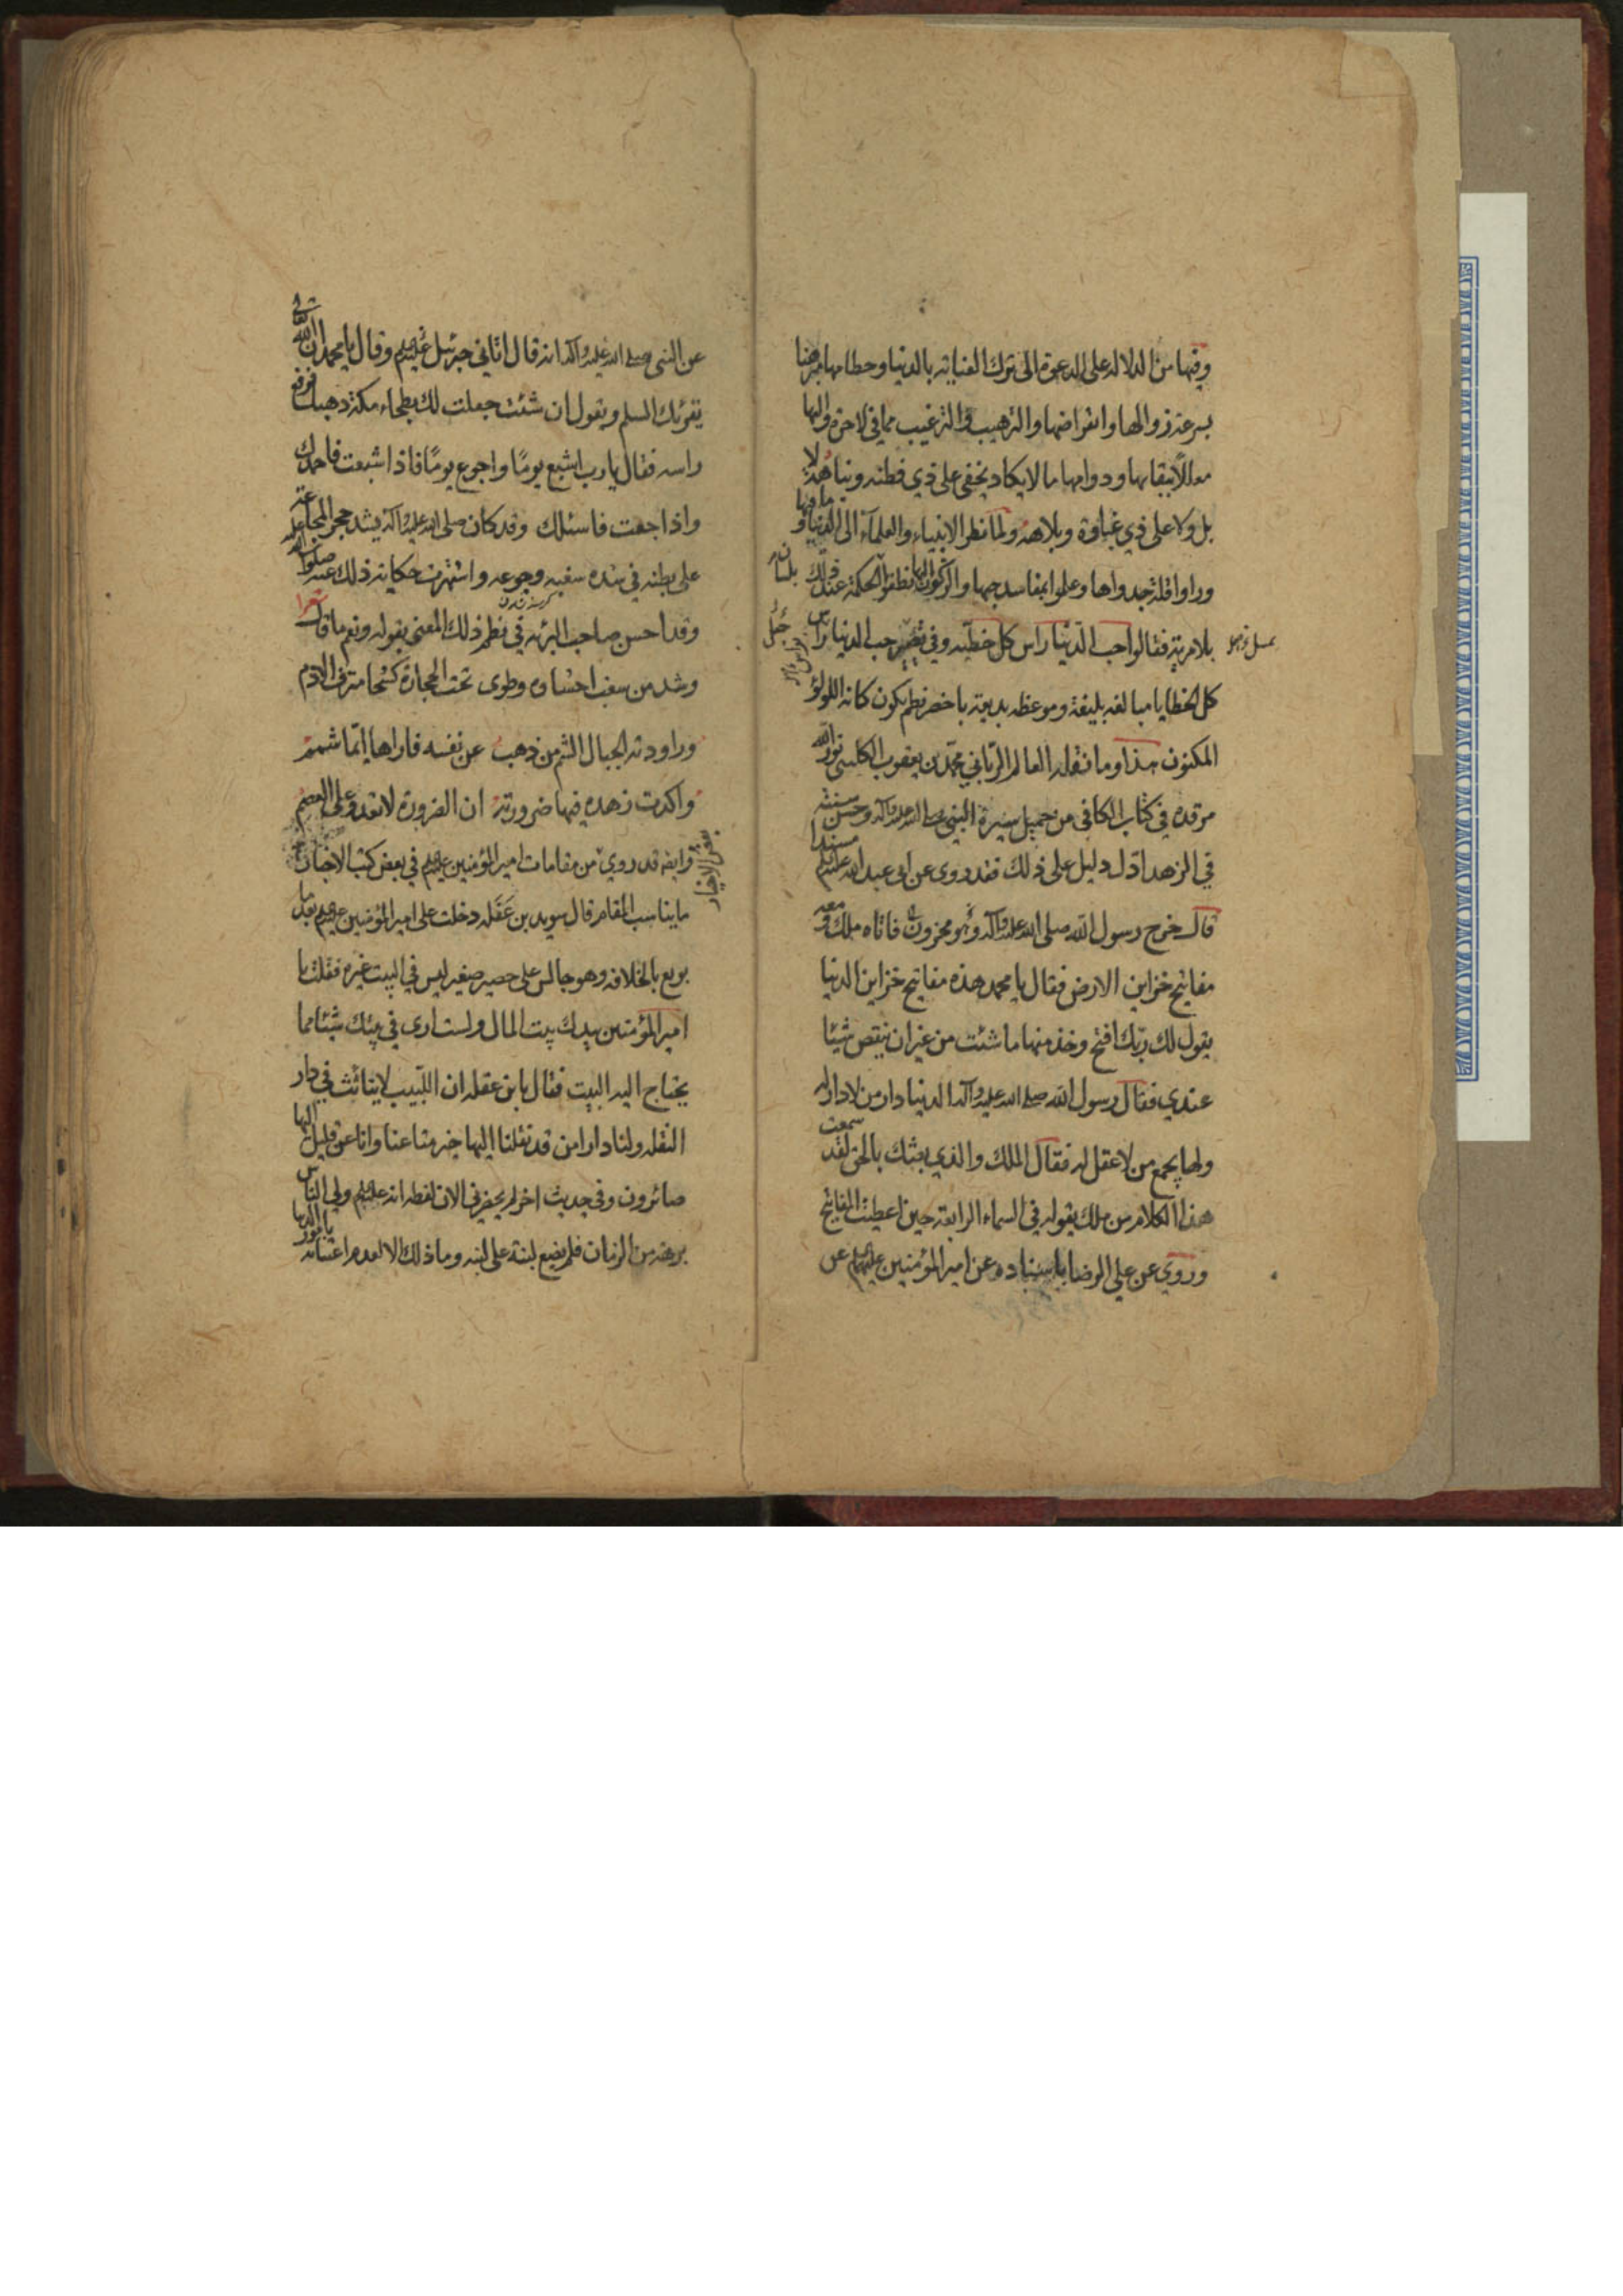 وفيها من الدلاله على الدعوة الى ترك العناية بالدنيا وحطامها معرضا
بسرعة زوالها وانقراضها والترهيب والترغيب مما في الاخرة والها
معللا ببقائها ودوامها ما لا يكاد يخفى على ذي فطنه ونباهة لا
بل ولا على ذي غباوة وبلاهة ولما نظر الانبياء والعلماء الى الدنيا وما فيها
وراوا قلة جدواها وعلموا مفاسد حبها والركون اليها نطقوا الحكمة عند ذلك بلسان
بلا مرية فقالوا حب الدنيا راس كل خطيئه وفي حب الدنيا راس
كل الخطايا مبالغه بليغة وموعظه بديعة باخصر نظم يكون كانه اللولؤ
المكنون هذا وما نقله العالم الرباني محمد بن يعقوب الكليني نور الله
مرقده في كتاب الكافي من جميل سيرة النبي صلى الله عليه وآله وحسن سنته
في الزهد ادل دليل على ذلك فقد روى مسندا عن ابي عبد الله عليه السلم
قال خرج رسول الله صلى الله عليه وآله وهو محزون فاتاه ملك ومعه
مفاتيح خزاين الارض فقال يا محمد هذه مفاتيح خزاين الدنيا
يقول لك ربك افتح وخذ منها ما شئت من غير ان ينقص شيئا
عندي فقال رسول الله صلى الله عليه وآله الدنيا دار من لا دار له
ولها يجمع من لا عقل له فقال الملك والذي بعثك بالحق لقد سمعت
هذا الكلام من ملك يقوله في السماء الرابعة حين اعطيت المفاتيح
وروي عن علي الرضا باسناده عن امير المؤمنين عليهم السلم عن
عن النبي صلى الله عليه وآله انه قال اتاني جبرئيل عليه السلم وقال يا محمد ان الله تعالى
يقرئك السلم ويقول ان شئت جعلت لك بطحاء مكة ذهبا فرفع
راسه فقال يا رب اشبع يوما واجوع يوما فاذا شبعت فاحمدك
واذا جعت فاسئلك وقد كان صلى الله عليه وآله يشد حجر المجاعة
على بطنه في شدة سغبه وجوعه واشتهرت حكاية ذلك عنه صلوات الله عليه
وقد احسن صاحب البرئه في نظم ذلك المعنى بقوله ونعم ما قال شعرا
وشد من سغب احشاوه وطوى تحت الحجارة كشحا مترف الادم
وراودته الجبال الشم من ذهب عن نفسه فاراها ايما شمم
واكدت زهده فيها ضرورته ان الضرورة لا تعدو على العصم
وايضا قد روي من مقامات امير المؤمنين عليه السلم في بعض كتب الاخبار
ما يناسب المقام قال سويد بن عقله دخلت على امير المؤمنين عليه السلم بعد ما
بويع بالخلافه وهو جالس على حصير صغير ليس في البيت غيره فقلت يا
امير المؤمنين بيدك بيت المال ولست ارى في بيتك شيئا مما
يحتاج اليه البيت فقال يا بن عقله ان اللبيب لا يتاثث في دار
النقله ولنا دار امن قد نقلنا اليها خير متاعنا وانا عن قليل اليها
صائرون وفي حديث اخر لم يحضرني الان لفظه انه عليه السلم ولي الناس
برهة من الزمان فلم يضع لبنة على لبنه وما ذلك الا لعدم اعتنائه بامور الدنيا